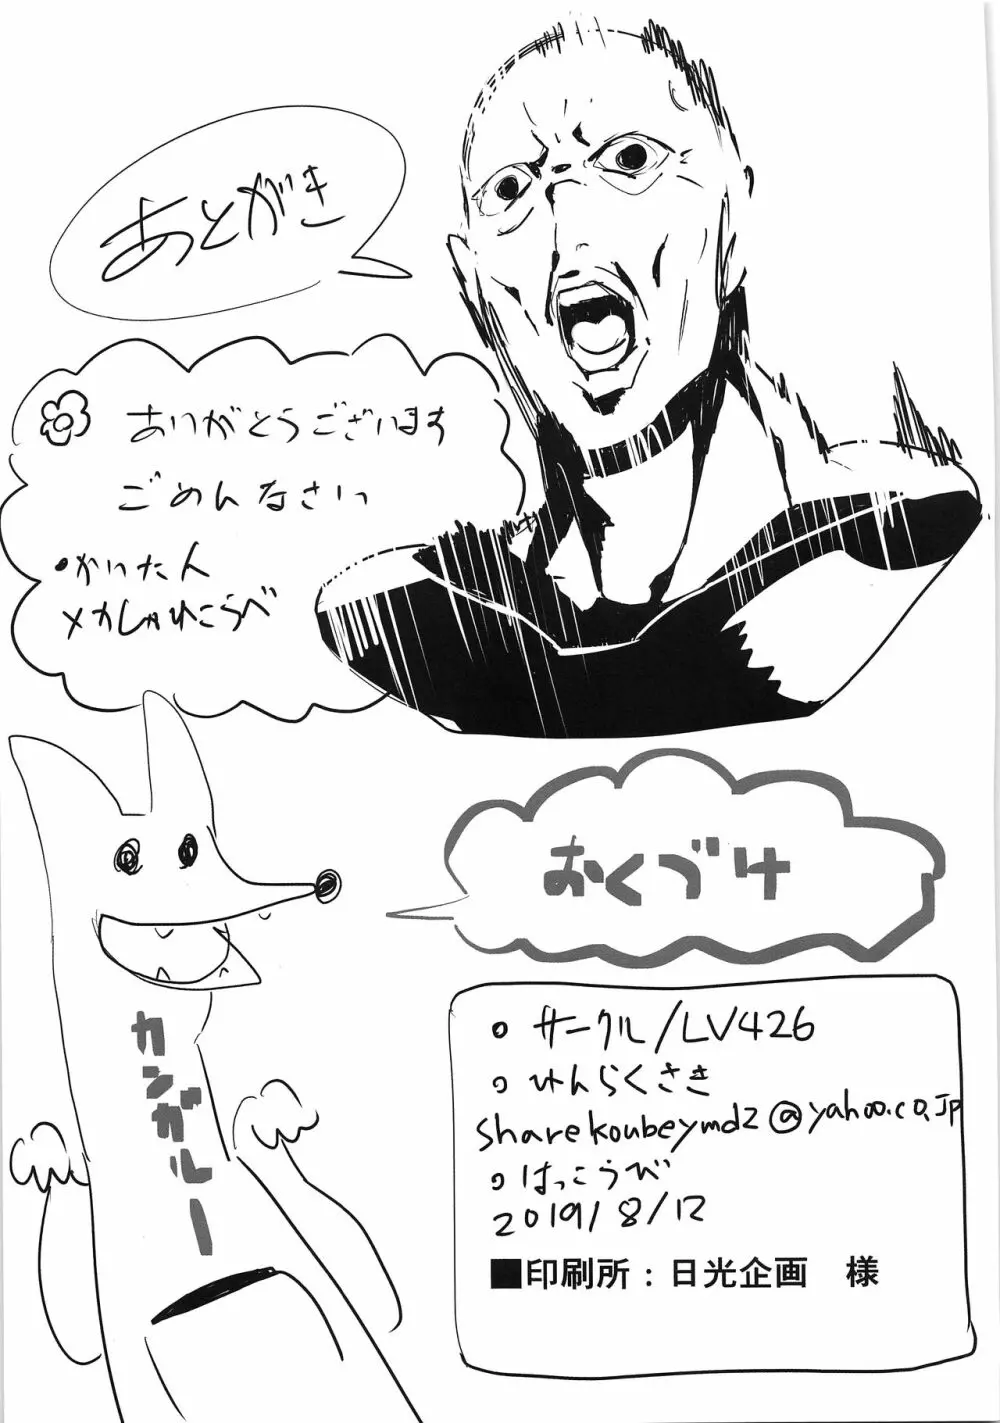 あとがき
ありがとうございます
ごめんなさいっ
・かいた人
メカしゃれこうべ
おくづけ
カンガルー
○サークル/LV426
○れんらくさき
sharekoubeymdz@yahoo.co.jp
○はっこうび
2019/8/12
■印刷所：日光企画 様